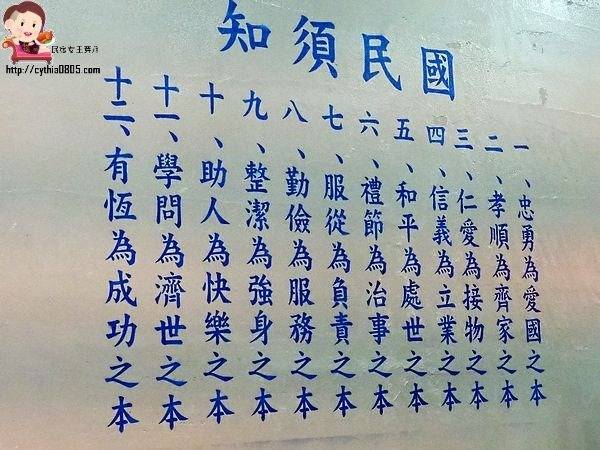 國民須知
一、忠勇為愛國之本
二、孝順為齊家之本
三、仁愛為接物之本
四、信義為立業之本
五、和平為處世之本
六、禮節為治事之本
七、服從為負責之本
八、勤儉為服務之本
九、整潔為強身之本
十、助人為快樂之本
十一、學問為濟世之本
十二、有恆為成功之本
民宿女王芽月
http://cythia0805.com